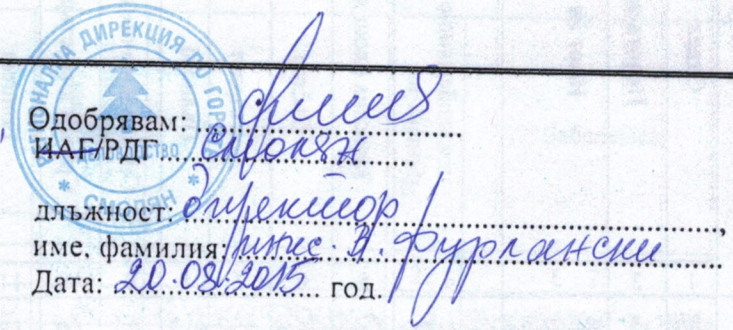 РЕГИОНАЛНА ДИРЕКЦИЯ ПО ГОРИТЕ
ДЕЛОВОДСТВО
* СМОЛЯН *
Одобрявам:
ИАГ/РДГ Смолян
длъжност: директор
име, фамилия: /инж. З. Фурлански/
Дата: 20.08.2015 год.